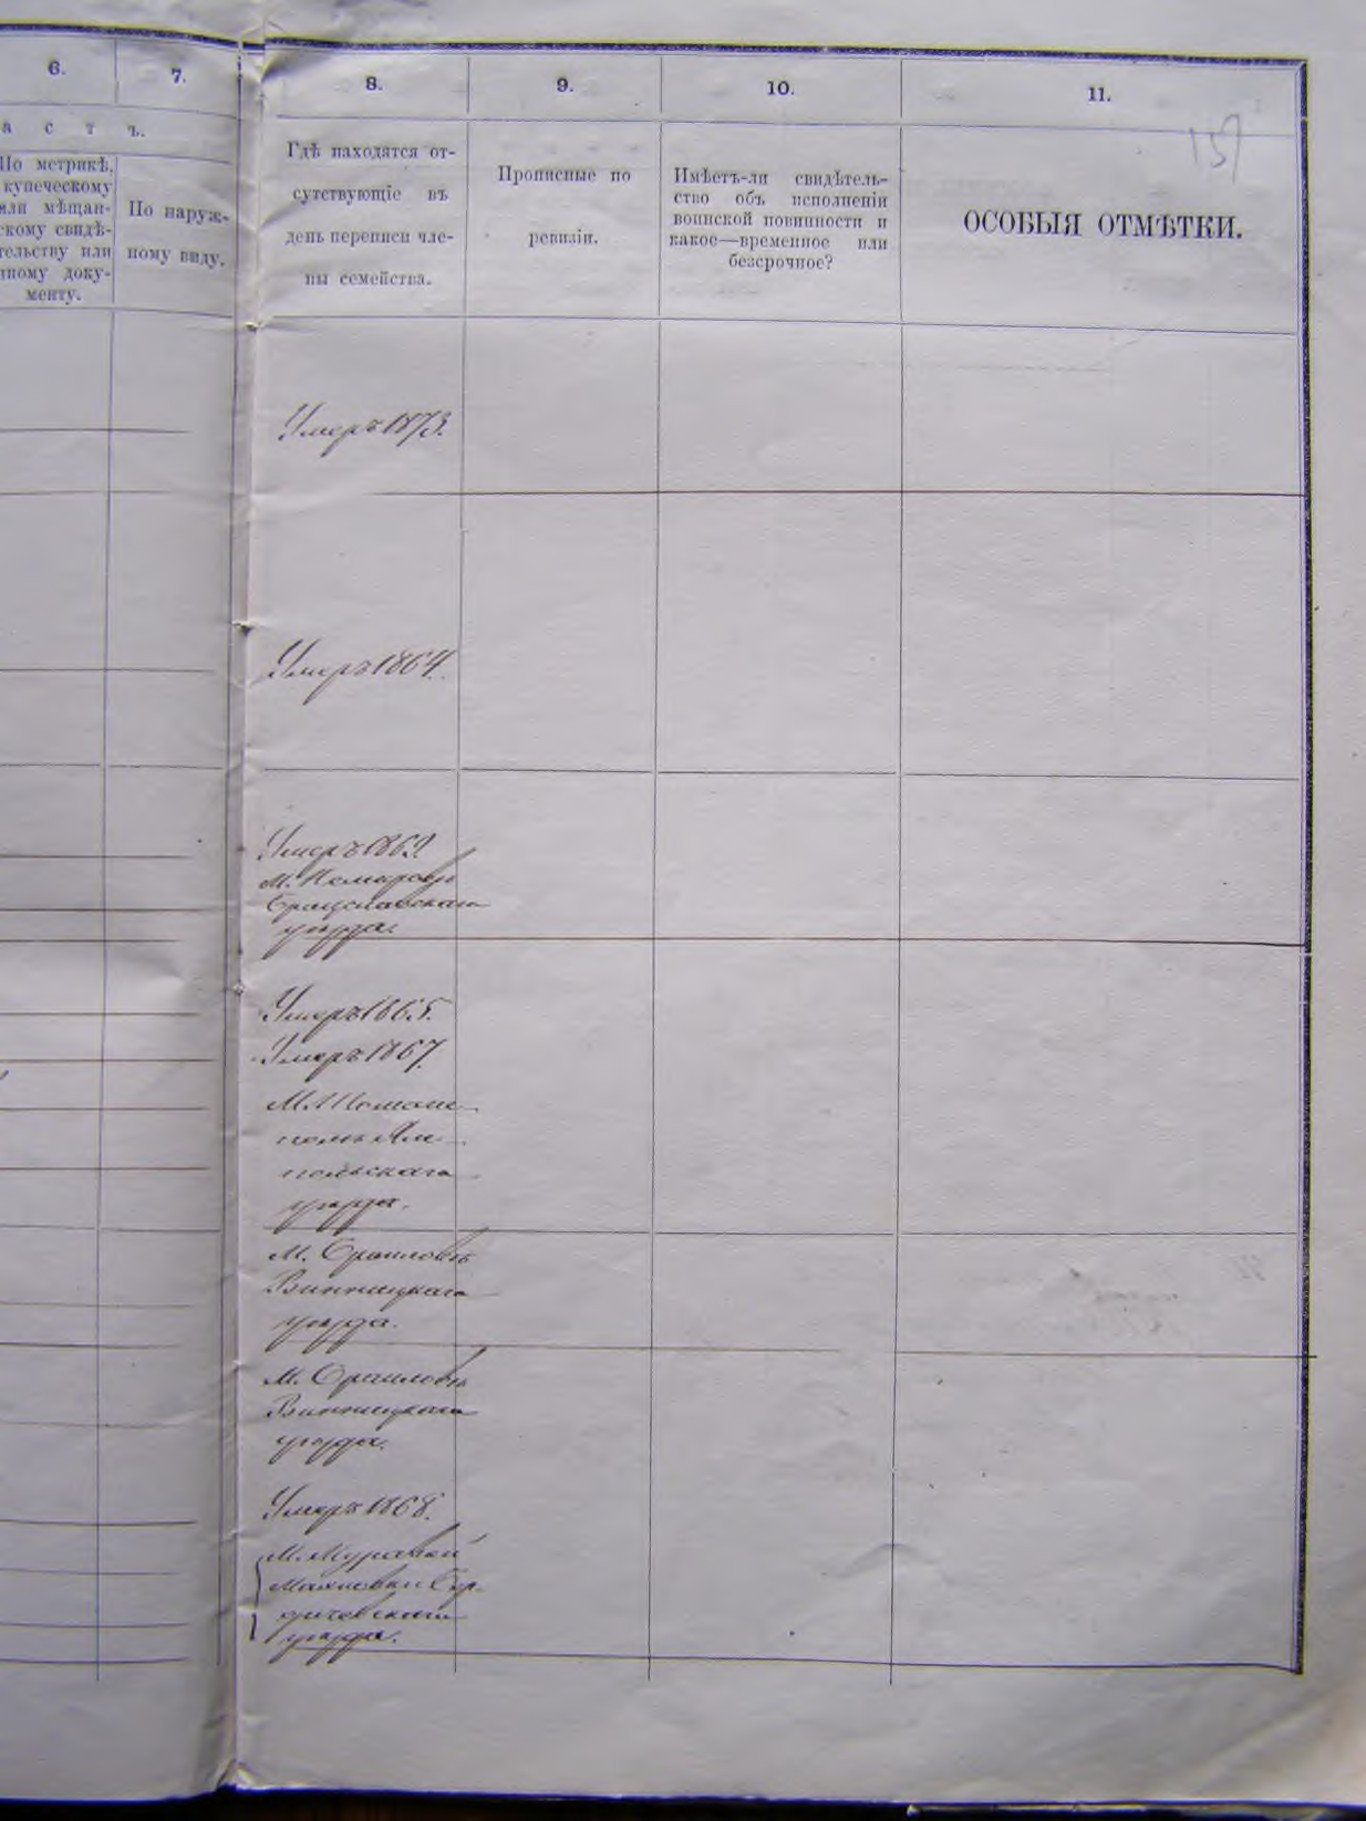 6.
7.
8.
9.
10.
11.
а с т ъ.
По метрикѣ,
купеческому
или мѣщан-
скому свидѣ-
тельству или
иному доку-
менту.
По наруж-
ному виду.
Гдѣ находятся от-
сутствующіе въ
день переписи чле-
ны семейства.
Прописные по
ревизіи.
Имѣетъ-ли свидѣтель-
ство объ исполненіи
воинской повинности и
какое—временное или
безсрочное?
ОСОБЫЯ ОТМѢТКИ.
Умеръ 1873.
Умеръ 1864.
Умеръ 1862
М. Немировъ
Брацславскаго
уѣзда.
Умеръ 1865.
Умеръ 1867.
М. Томаш
поль Ям
польскаго
уѣзда.
М. Браиловъ
Винницкаго
уѣзда.
М. Браиловъ
Винницкаго
уѣзда.
Умеръ 1868.
М.
Бер-
дичевскаго
уѣзда.